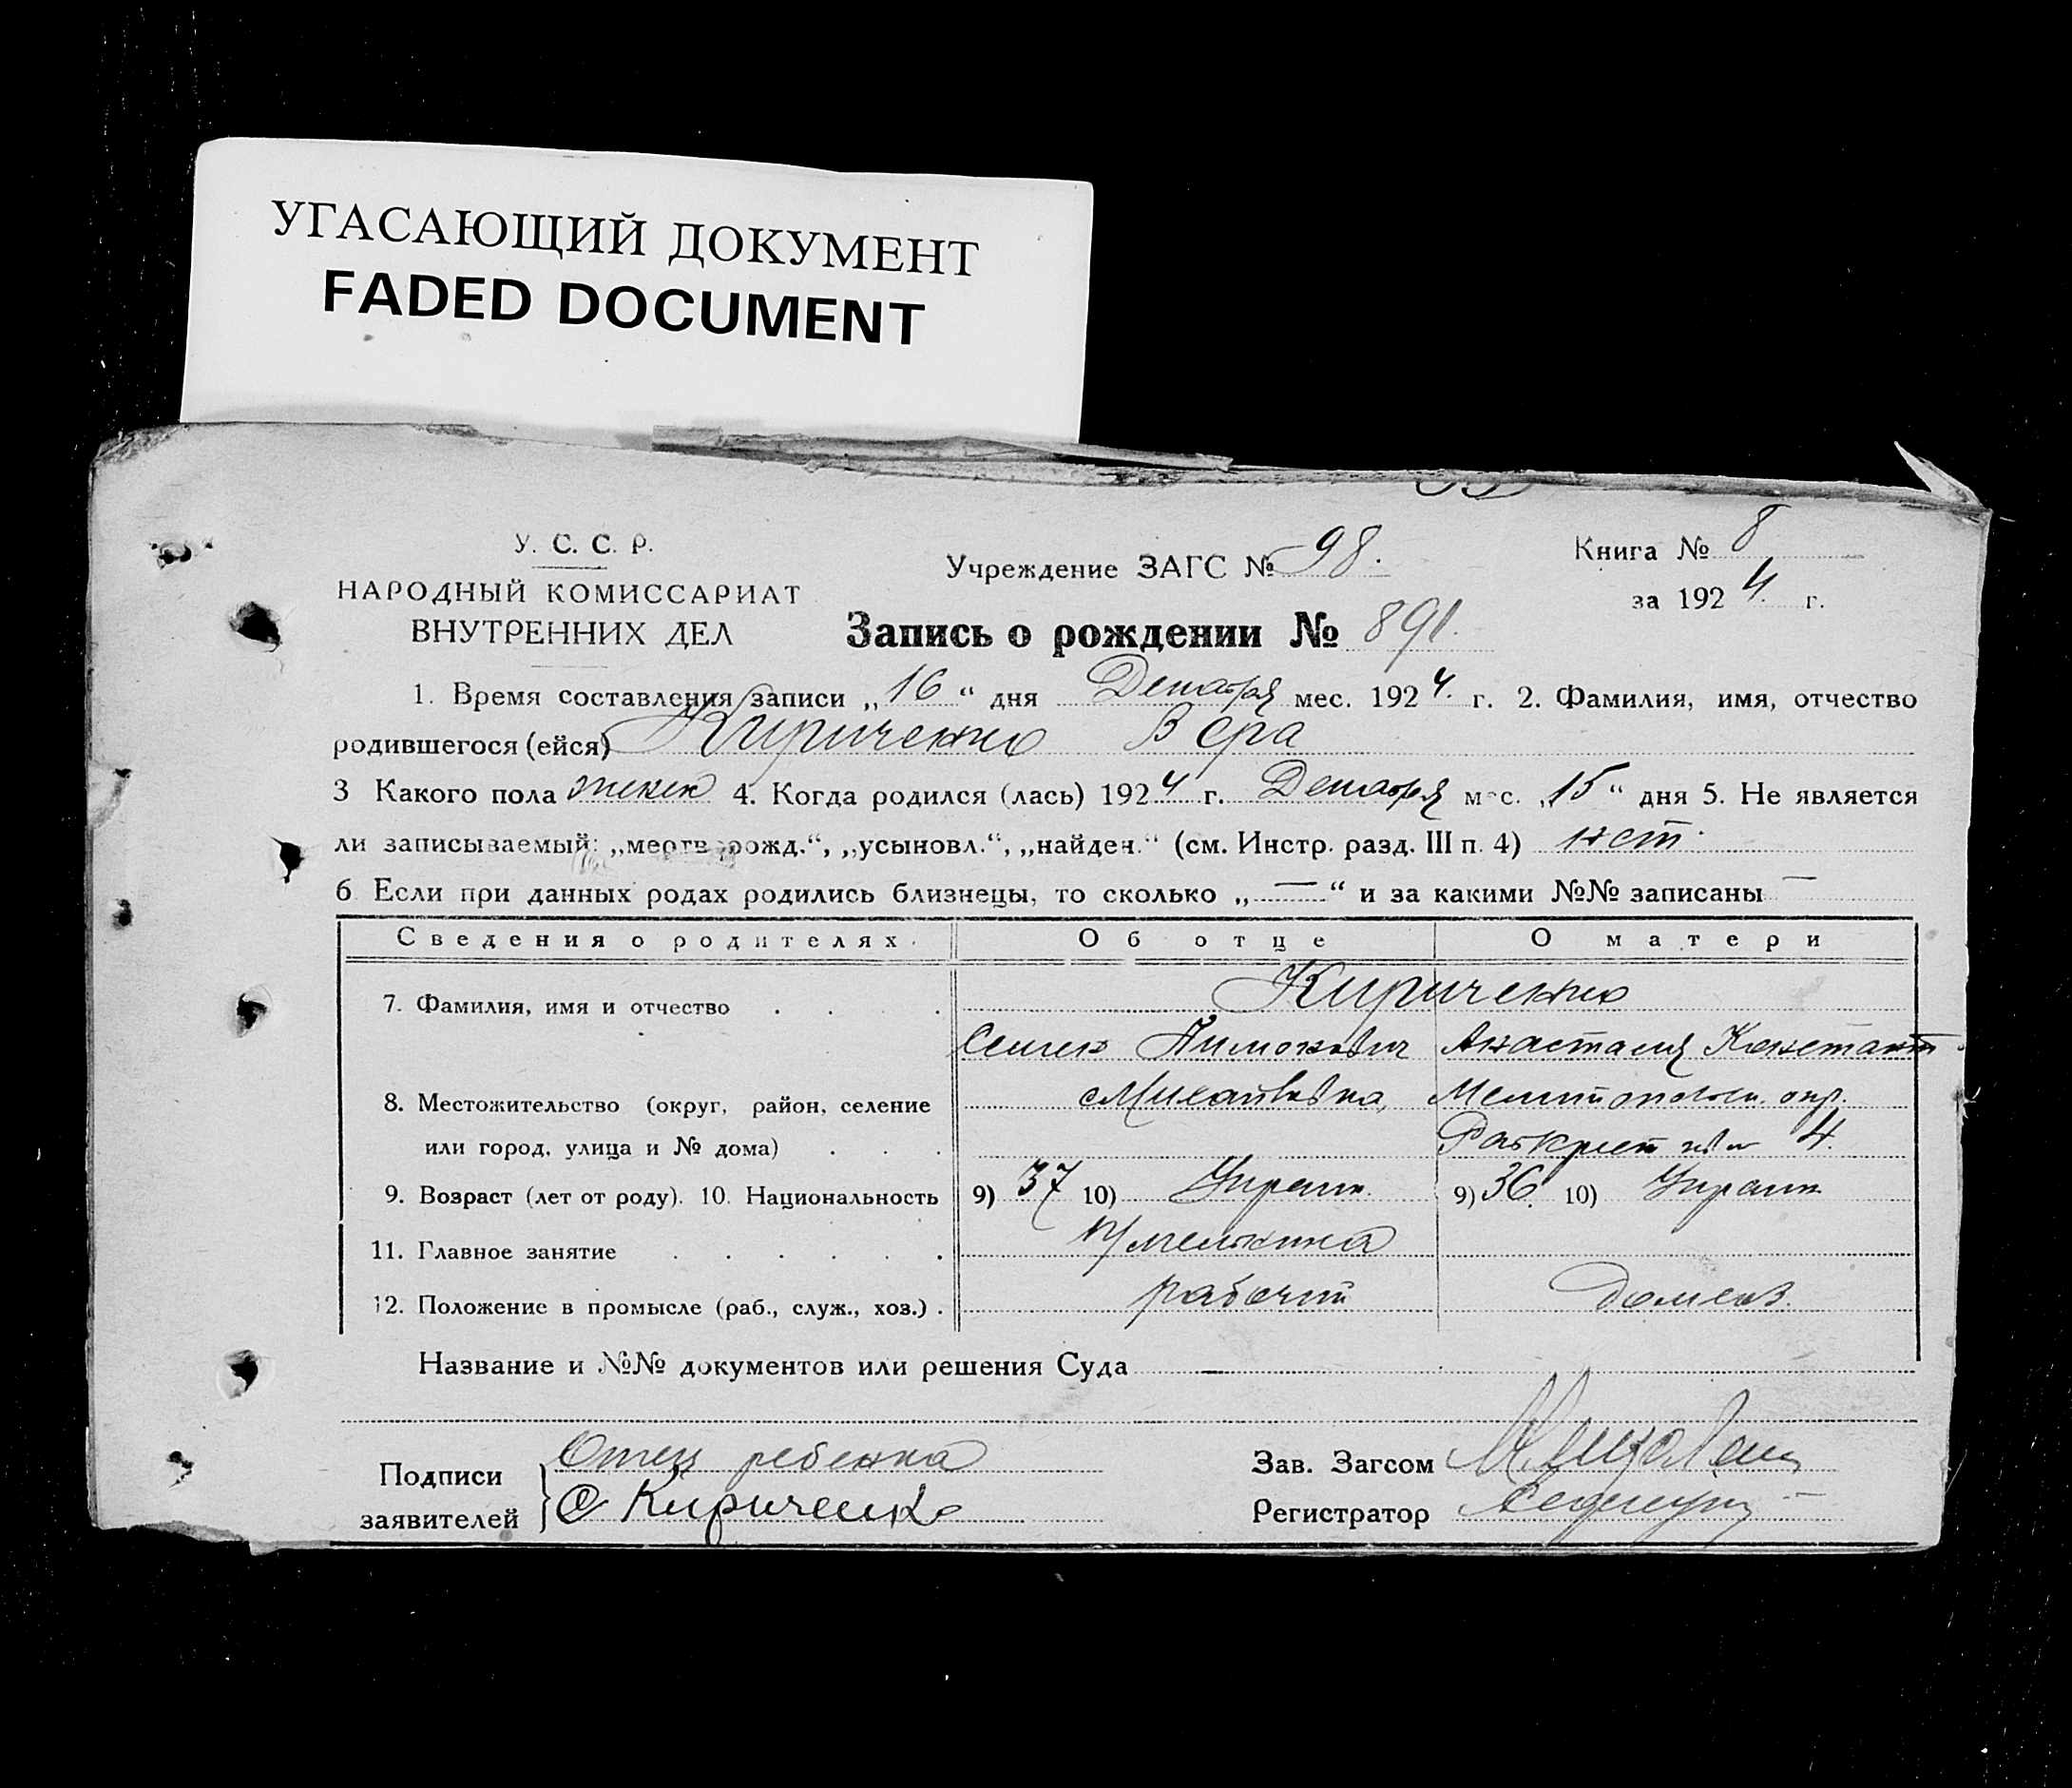 УГАСАЮЩИЙ ДОКУМЕНТ
FADED DOCUMENT
У. С. С. Р.
НАРОДНЫЙ КОМИССАРИАТ
ВНУТРЕННИХ ДЕЛ
Учреждение ЗАГС № 98.
Книга № 8
за 1924 г.
Запись о рождении № 891.
1. Время составления записи „16“ дня Декабря мес. 1924. г. 2. Фамилия, имя, отчество
родившегося (ейся) Кириченко Вера
3 Какого пола женск 4. Когда родился (лась) 1924 г. Декабря мес. „15“ дня 5. Не является
ли записываемый: „мертворожд.“, „усыновл.“, „найден.“ (см. Инстр. разд. III п. 4) нет.
6 Если при данных родах родились близнецы, то сколько „—“ и за какими №№ записаны —
Сведения о родителях. Об отце О матери
7. Фамилия, имя и отчество . . . . Кириченко
Семен Анастасия Констант
8. Местожительство (округ, район, селение сМихайловка, Мелитопольск. окр.
или город, улица и № дома) . . . 4.
9. Возраст (лет от роду). 10. Национальность 9) 37 10) Украин. 9) 36 10) Украин
11. Главное занятие . . . . . .
12. Положение в промысле (раб., служ., хоз.) . рабочий домохоз.
Название и №№ документов или решения Суда —
Подписи
заявителей
Отец ребенка
С Кириченко
Зав. Загсом
Регистратор